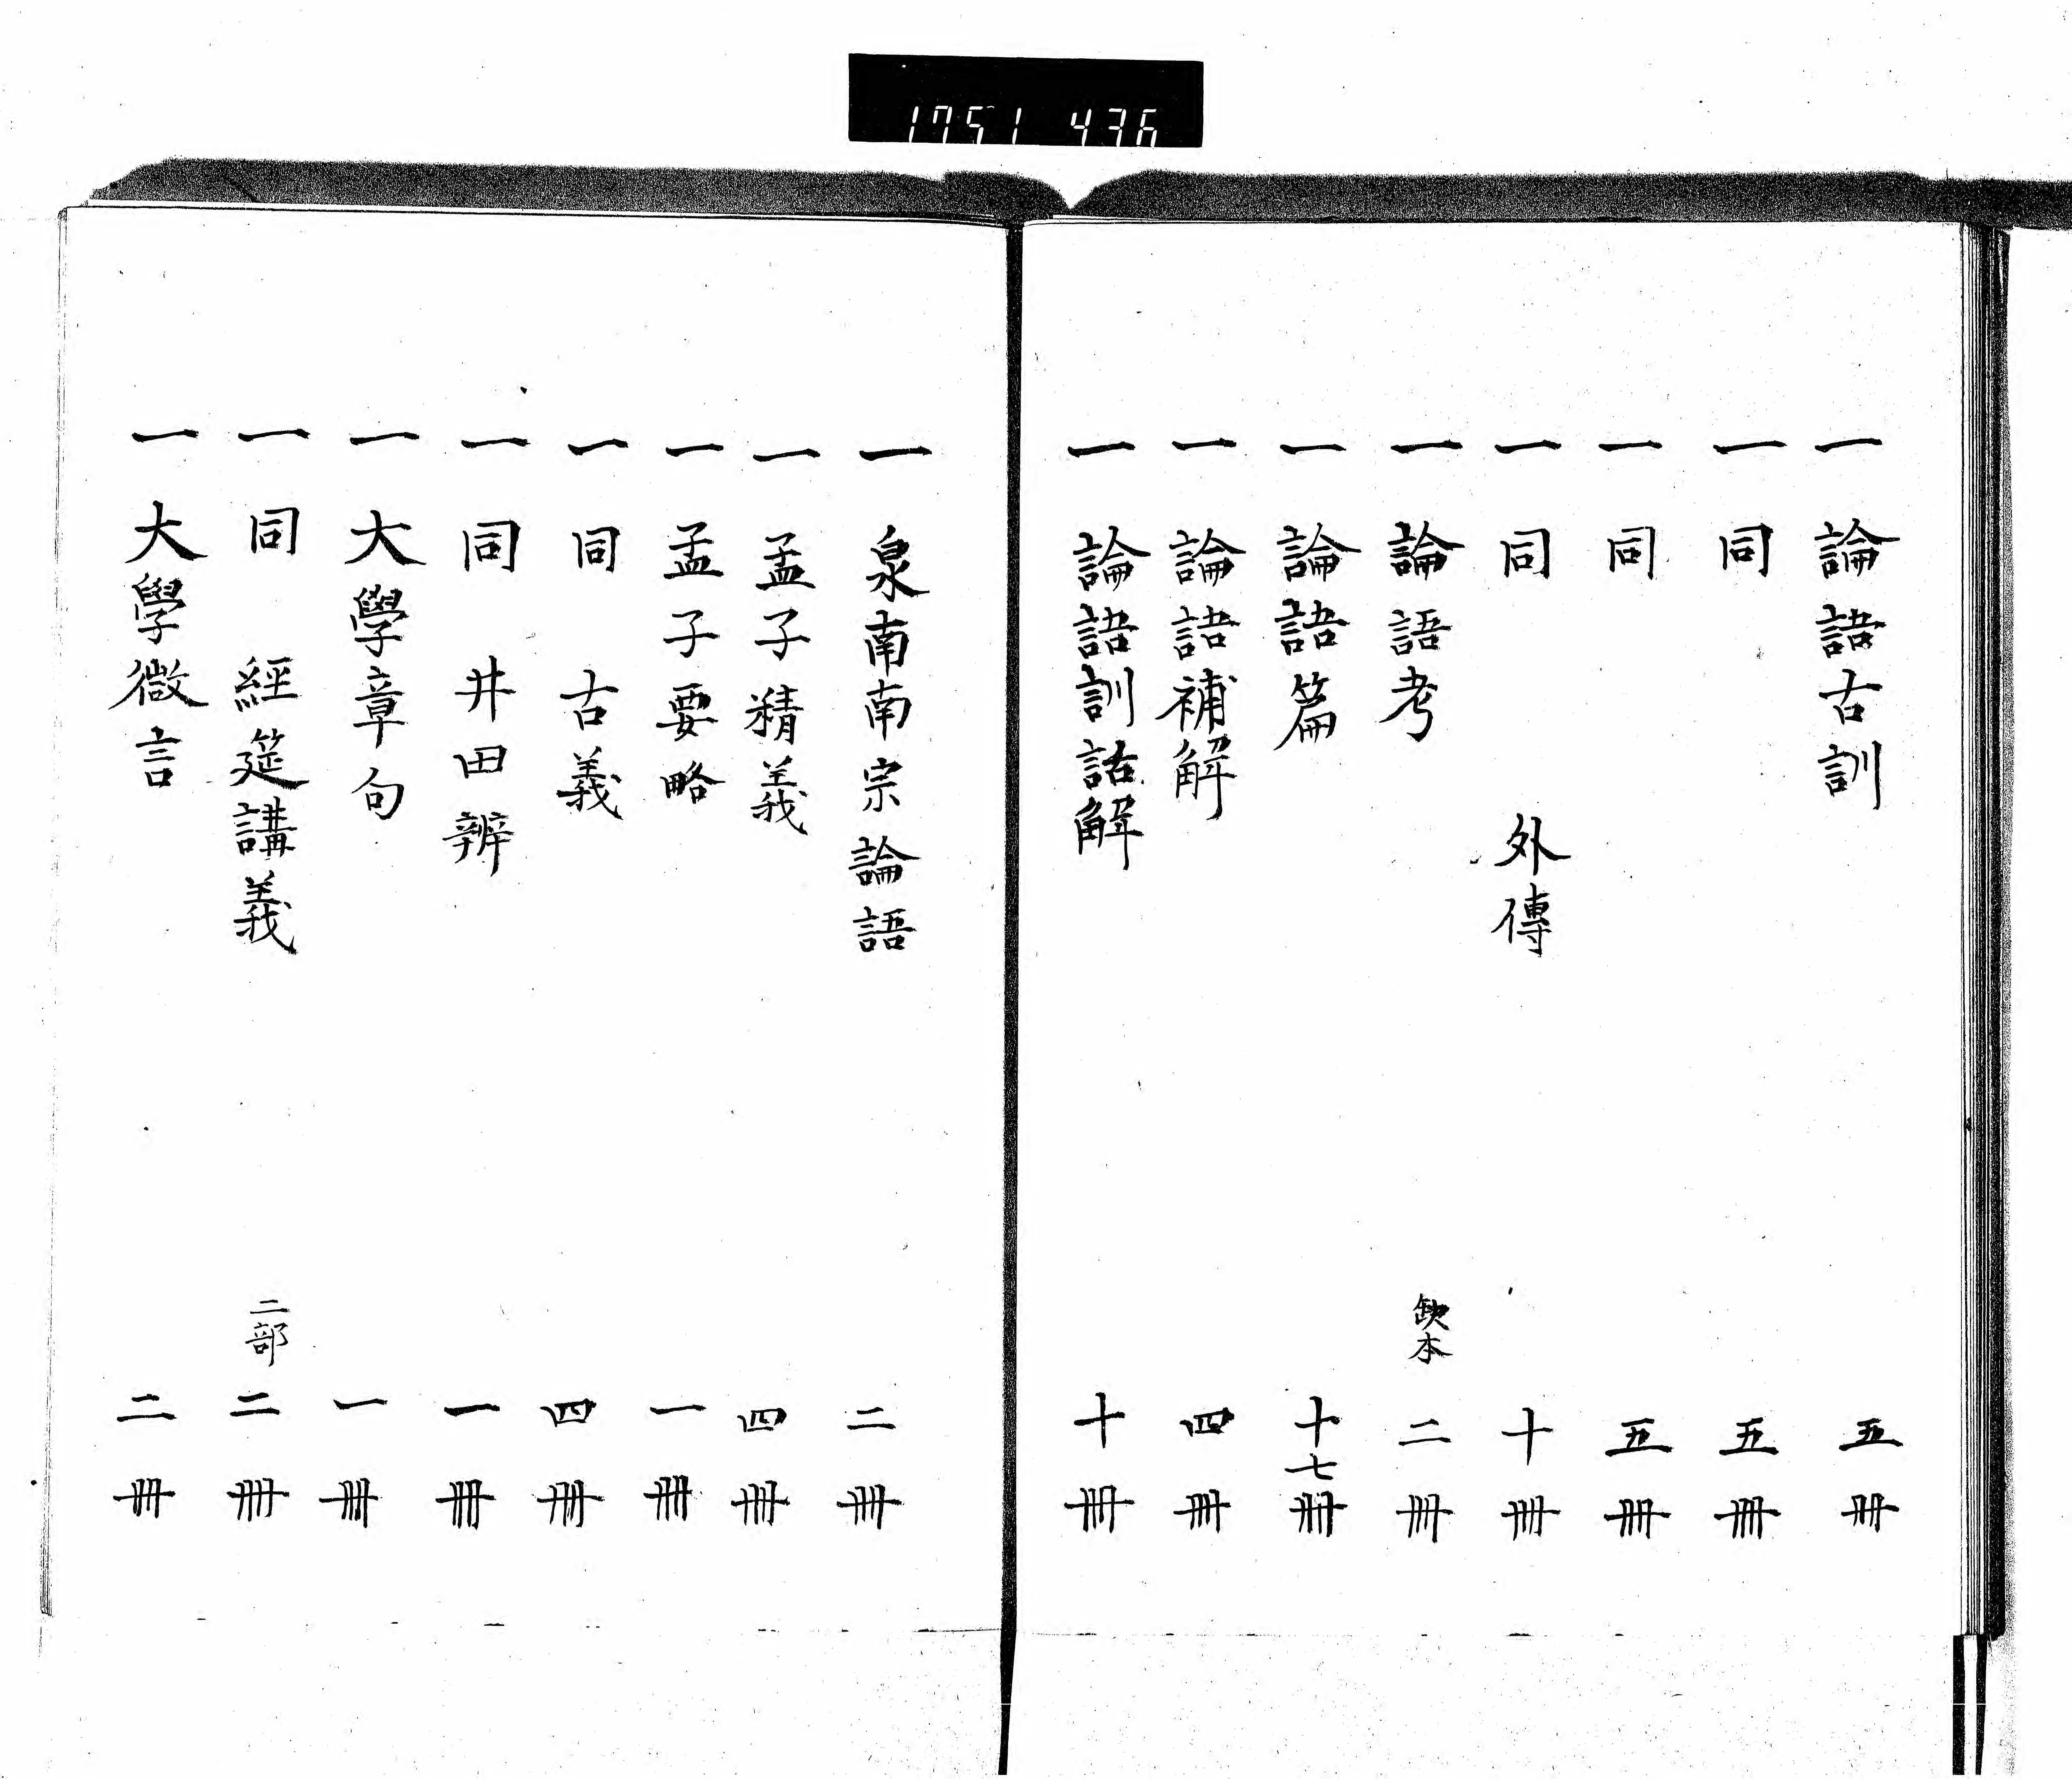 1751 436
一 論語古訓 五冊
一 同 五冊
一 同 五冊
一 同 外傳 十冊
一 論語考 缺本 二冊
一 論語篇 十七冊
一 論語補解 四冊
一 論語訓詁解 十冊
一 泉南南宗論語 二冊
一 孟子精義 四冊
一 孟子要略 一冊
一 同 古義 四冊
一 同 井田辨 一冊
一 大學章句 一冊
一 同 經筵講義 二部 二冊
一 大學微言 二冊